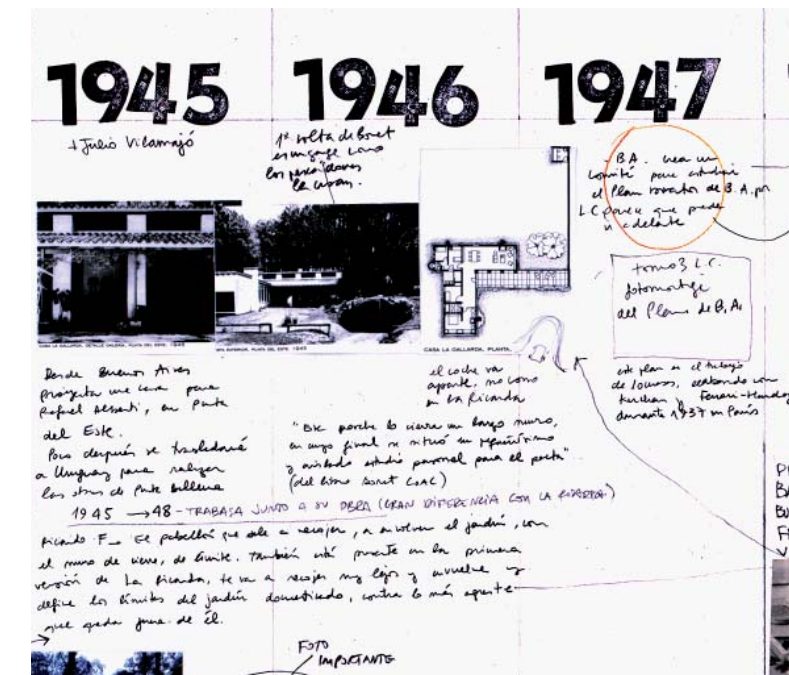 1945 1946 1947
+ Julio Vilamajó
1ª volta de Bonet
los pescadores
B.A. crea un
comité para estudiar
el Plan director de B.A. por
L.C. parece que puede
ir adelante
tomo 3 L.C.
fotomontaje
del Plan de B.A.
CASA LA GALLARDA. DETALLE GALERIA. PUNTA DEL ESTE. 1945
EXTERIOR. PUNTA DEL ESTE. 1945
CASA LA GALLARDA. PLANTA.
Desde Buenos Aires
proyecta una casa para
Rafael Alberti, en Punta
del Este.
Poco después se trasladará
a Uruguay para realizar
las obras de Punta Ballena
el coche va
aparte, no como
en La Ricarda
"Este porche lo cierra un largo muro,
en cuyo final se situó un pequeñísimo
y aislado estudio personal para el poeta"
(del libro Bonet COAC)
este plan es el trabajo
de con
Kurchan y Ferrari-Hardoy
durante 1937 en París
1945 → 48 - TRABAJA JUNTO A SU OBRA (GRAN DIFERENCIA CON LA RICARDA)
Ricardo F_ El pabellón que sale a recojer, a envolver el jardín, con
el muro de cierre, de límite. También está presente en la primera
versión de La Ricarda, te va a recojer muy lejos y envuelve y
define los límites del jardín domesticado, contra lo más agreste
que queda fuera de él.
FOTO
IMPORTANTE